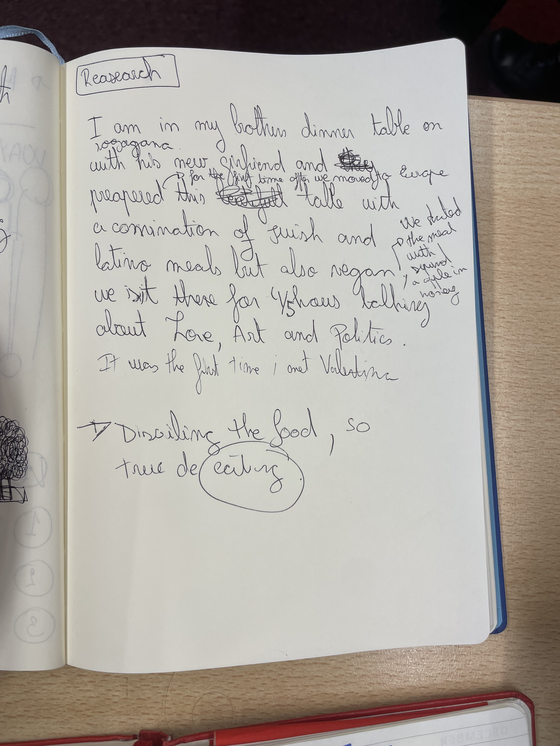 Reasearch
I am in my brothers dinner table on
with his new girlfriend and
for the first time after we moved to Europe
preapered this table with
a comination of juish and
latino meals but also vegan
we started
the meal
with
a aple in
honey
we isit there for 4/5 hours talking
about Love, Art and Politics.
It was the first time i met Valentina
→ Disciling the food, so
true de eating
1
2
3